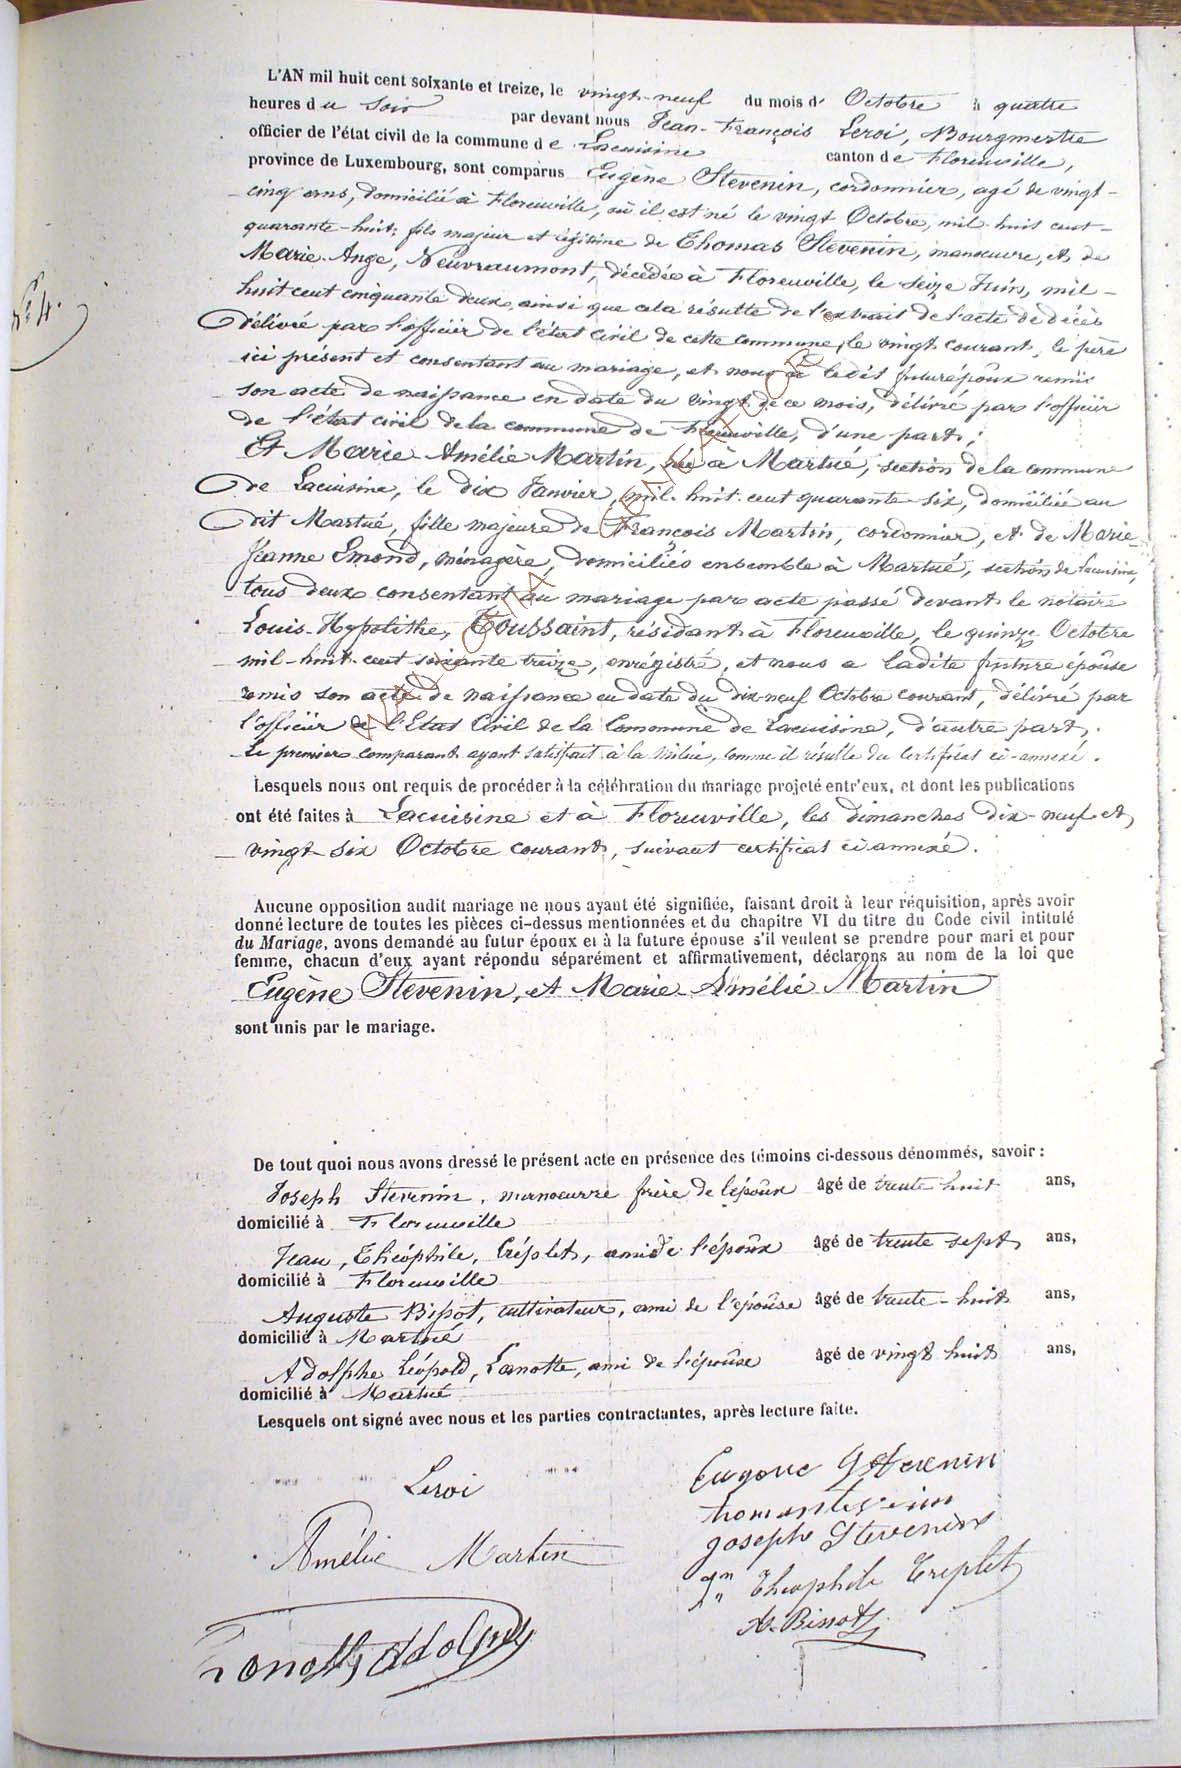 L'AN mil huit cent soixante et treize, le vingt-neuf du mois d' Octobre à quatre
heures du soir par devant nous Jean-François Leroi, Bourgmestre
officier de l'état civil de la commune de Lacuisine canton de Florenville,
province de Luxembourg, sont comparus Eugène Stevenin, cordonnier, agé de vingt-
cinq ans, domicilié à Florenville, où il est né le vingt Octobre, mil huit cent-
quarante-huit; fils majeur et légitime de Thomas Stevenin, manoeuvre, et de
Marie-Ange, Neuvraumont, décédée à Florenville, le seize Juin, mil-
N° 4.
huit cent cinquante deux, ainsi que cela résulte de l'extrait de l'acte de décès
délivré par l'officier de l'état civil de cette commune, le vingt courant, le père
ici présent et consentant au mariage, et nous a ledit futur époux remis
son acte de naissance en date du vingt de ce mois, délivré par l'officier
de l'état civil de la commune de Florenville, d'une part;
Et Marie Amélie Martin, née à Martué, section de la commune
de Lacuisine, le dix Janvier, mil-huit-cent quarante-six, domiciliée au
dit Martué, fille majeure de François Martin, cordonnier, et de Marie-
Jeanne Emond, ménagère, domiciliés ensemble à Martué, section de Lacuisine,
tous deux consentant au mariage par acte passé devant le notaire
Louis-Hypolithe, Toussaint, résidant à Florenville, le quinze Octobre
mil-huit-cent soixante treize, enrégistré, et nous a ladite future épouse
remis son acte de naissance en date du dix-neuf Octobre courant, délivré par
l'officier de l'Etat Civil de la Commune de Lacuisine, d'autre part.
Le premier comparant ayant satisfait à la milice, comme il résulte du certificat ci-annexé.
Lesquels nous ont requis de procéder à la célébration du mariage projeté entr'eux, et dont les publications
ont été faites à Lacuisine et à Florenville, les dimanches dix-neuf et
vingt-six Octobre courant, suivant certificat ci annexé.
Aucune opposition audit mariage ne nous ayant été signifiée, faisant droit à leur réquisition, après avoir
donné lecture de toutes les pièces ci-dessus mentionnées et du chapitre VI du titre du Code civil intitulé
du Mariage, avons demandé au futur époux et à la future épouse s'il veulent se prendre pour mari et pour
femme, chacun d'eux ayant répondu séparément et affirmativement, déclarons au nom de la loi que
Eugène Stevenin, et Marie-Amélie Martin
sont unis par le mariage.
De tout quoi nous avons dressé le présent acte en présence des témoins ci-dessous dénommés, savoir :
Joseph Stevenin, manoeuvre frère de l'époux âgé de trente huit ans,
domicilié à Florenville
Jean, Théophile, Créplet, ami de l'époux âgé de trente sept ans,
domicilié à Florenville
Auguste Bissot, cultivateur, ami de l'épouse âgé de trente-huit ans,
domicilié à Martué
Adolphe Léopold, Lanotte, ami de l'épouse âgé de vingt huit ans,
domicilié à Martué
Lesquels ont signé avec nous et les parties contractantes, après lecture faite.
Leroi
Eugene Stevenin
Joseph Stevenin
Amélie Martin
Jn Théophile Creplet
A. Bissot
Lanotte Adolphe